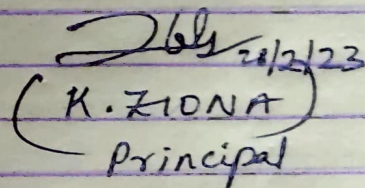 28/2/23
(K. ZIONA)
Principal